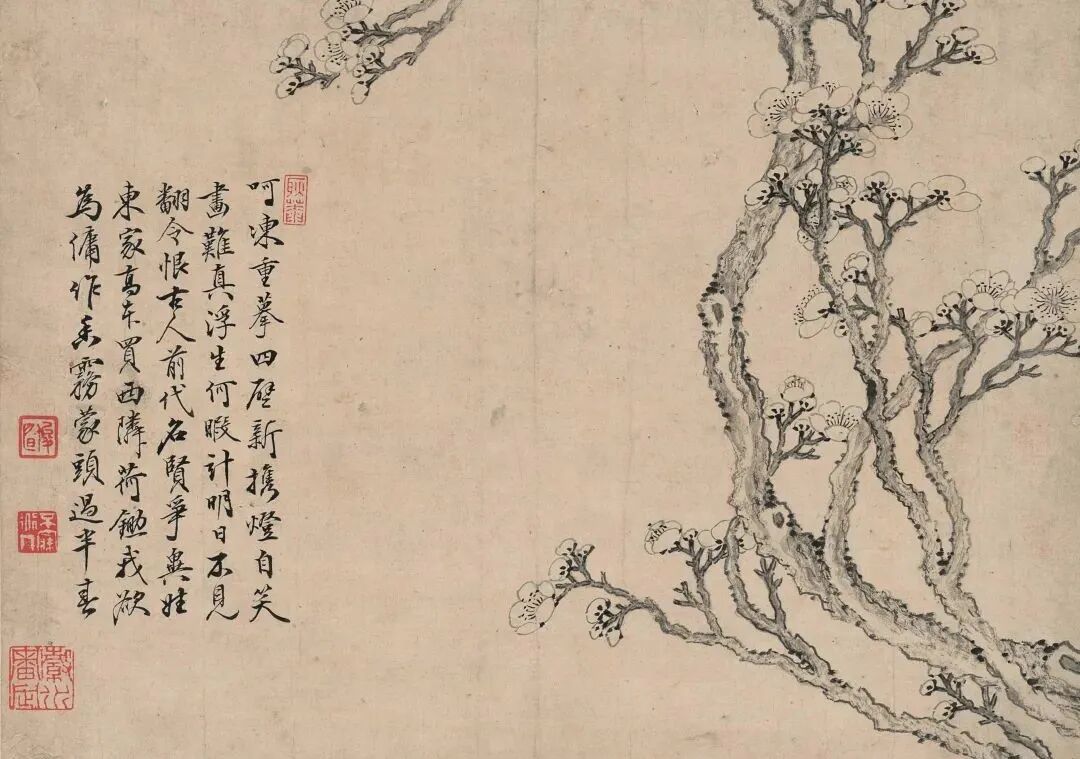 耿菴
呵凍重摹四壁新携燈自笑
畫難真浮生何暇計明日不見
翻令恨古人前代名賢爭與娃
東家高本買西隣荷鋤我欲
為傭作香霧蒙頭過半春